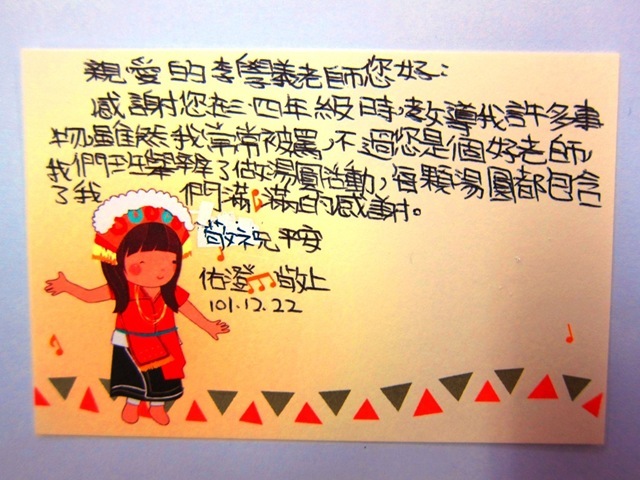 親愛的李學義老師您好：
感謝您在三四年級時,教導我許多事
物,雖然我常常被罵,不過您是個好老師,
我們班舉辦了做湯圓活動,每顆湯圓都包含
了我們滿滿的感謝。
敬祝 平安
佑澄 敬上
101.12.22